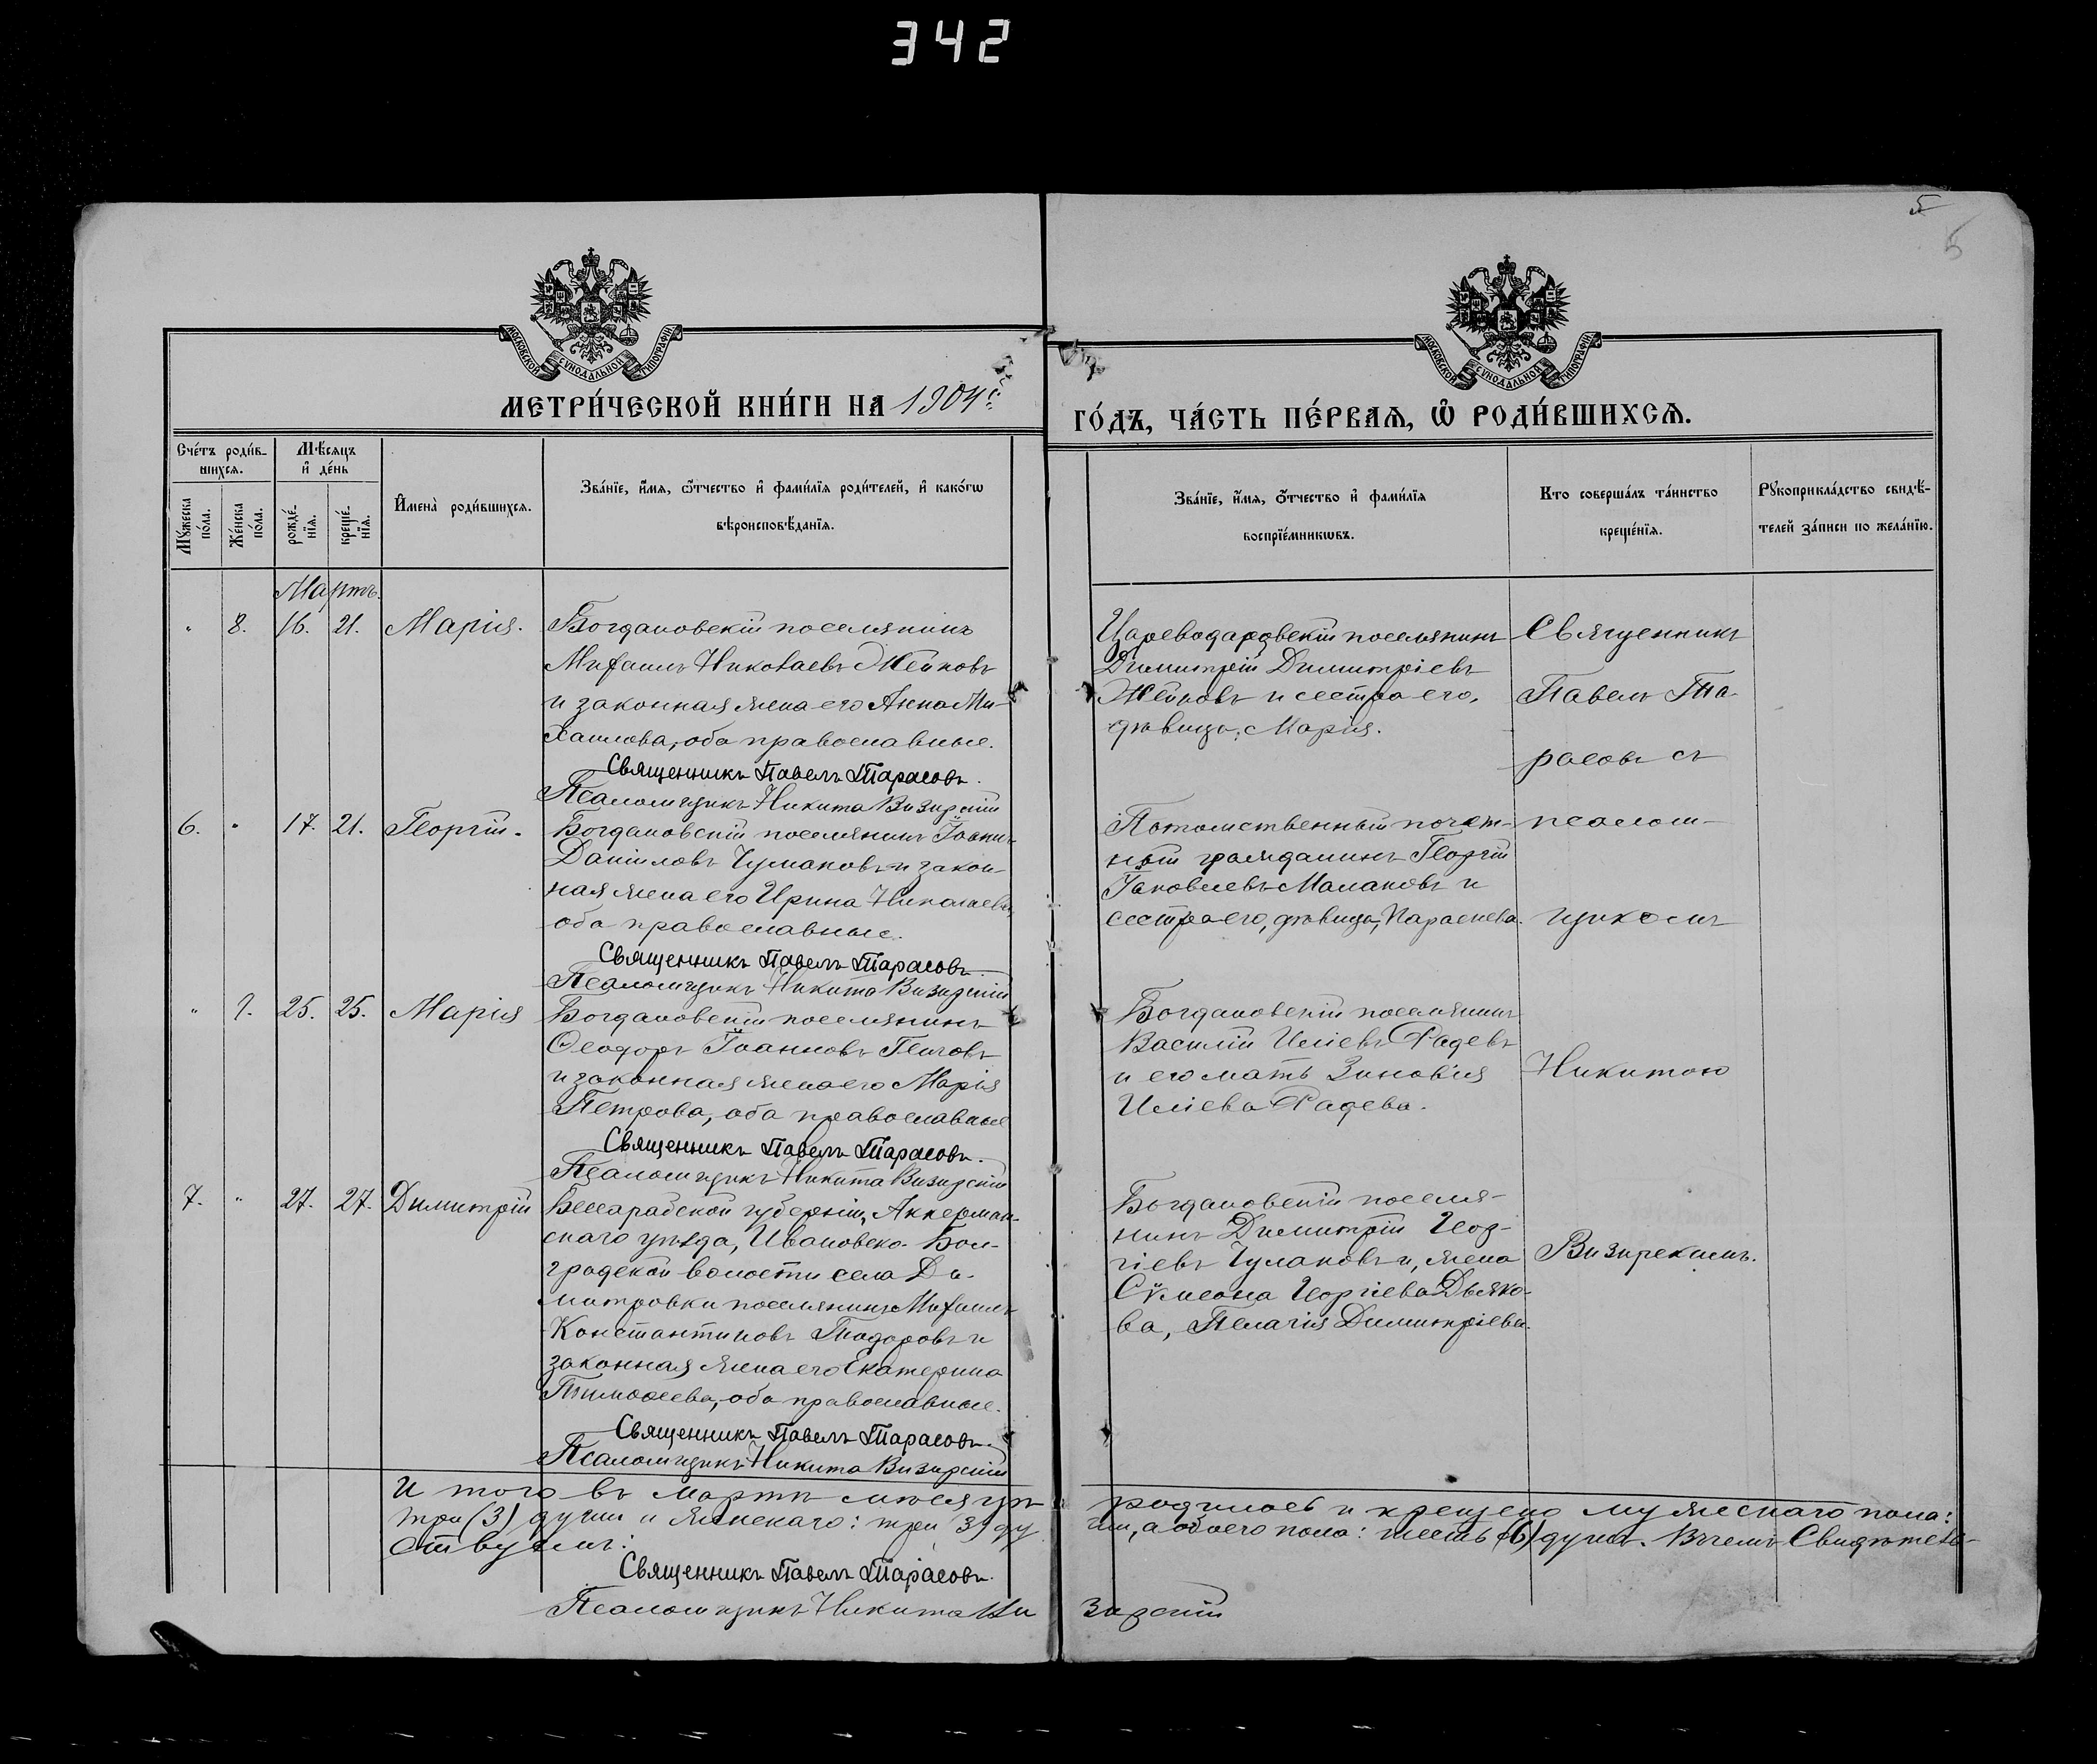 342
5
5
МОСКОВСКОЙ СѴНОДАЛЬНОЙ ТИПОГРАФІИ
МОСКОВСКОЙ СѴНОДАЛЬНОЙ ТИПОГРАФІИ
МЕТРИ́ЧЕСКОЙ КНИ́ГИ НА 1904 й
ГО́ДЪ, ЧА́СТЬ ПЕ́РВАѦ, Ѡ҆ РОДИ́ВШИХСѦ.
Сче́тъ роди́в-
шихсѧ.
Мѣ́сѧцъ
и҆ де́нь
Мꙋ́жеска
по́ла.
Же́нска
по́ла.
рожде́-
нїѧ.
креще́-
нїѧ.
И҆мена̀ роди́вшихсѧ.
Зва́нїе, и҆́мѧ, ѻ҆́тчество и҆ фами́лїѧ роди́телей, и҆ како́гѡ
вѣроисповѣ́данїѧ.
Зва́нїе, и҆́мѧ, ѻ҆́тчество и҆ фами́лїѧ
воспрїе́мникѡвъ.
Кто соверша́лъ та́инство
креще́нїѧ.
Рꙋкоприкла́дство свидѣ́-
телей за́писи по жела́нїю.
Мартъ.
" 8. 16. 21. Марія.
Богдановскій поселянинъ
Михаилъ Николаевъ Жейковъ
и законная жена его Анна Ми-
хаилова, оба православные.
Священникъ Павелъ Тарасовъ.
Псаломщикъ Никита Визирскій
Цареводаровскій поселянинъ
Димитрій Димитріевъ
Жейковъ и сестра его,
дѣвица, Марія.
Священникъ
Павелъ Та-
расовъ съ
6. " 17. 21. Георгій.
Богдановскій поселянинъ Іоаннъ
Даніиловъ Чумаковъ и закон-
ная жена его Ирина Николаева,
оба православные.
Священникъ Павелъ Тарасовъ.
Псаломщикъ Никита Визирскій
Потомственный почет-
ный гражданинъ Георгій
Іаковлевъ Малаковъ и
сестра его, дѣвица, Параскева.
псалом-
щикомъ
" 9. 25. 25. Марія
Богдановскій поселянинъ
Ѳеодоръ Іоанновъ Генговъ
и законная жена его Марія
Петрова, оба православные
Священникъ Павелъ Тарасовъ.
Псаломщикъ Никита Визирскій
Богдановскій поселянинъ
Василій Иліевъ Радевъ
и его мать Зиновія
Иліева Радева.
Никитою
7. " 27. 27. Димитрій
Бессарабской губерніи, Аккерман-
скаго уѣзда, Ивановско-Бол-
градской волости села Ди-
митровки поселянинъ Михаилъ
Константиновъ Тодоровъ и
законная жена его Екатерина
Тимоѳеева, оба православные.
Священникъ Павелъ Тарасовъ.
Псаломщикъ Никита Визирскій
Богдановскій поселя-
нинъ Димитрій Геор-
гіевъ Чумаковъ и, жена
Сѵмеона Георгіева Дьяко-
ва, Пелагія Димитріева.
Визирскимъ.
И того въ Мартѣ мѣсяцѣ родилось и крещено мужескаго пола:
три (3) души и женскаго: три (3) ду ши, а обоего пола: шесть (6) душъ. Въ чемъ Свидѣтель-
ствуемъ:
Священникъ Павелъ Тарасовъ.
Псаломщикъ Никита Ви зирскій